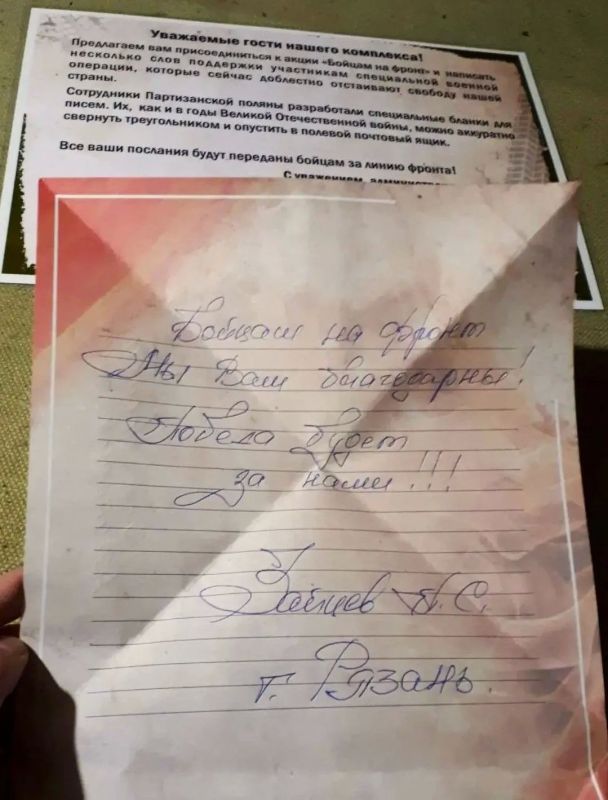 Уважаемые гости нашего комплекса!
Предлагаем вам присоединиться к акции «Бойцам на фронт» и написать
несколько слов поддержки участникам специальной военной
операции, которые сейчас доблестно отстаивают свободу нашей
страны.
Сотрудники Партизанской поляны разработали специальные бланки для
писем. Их, как и в годы Великой Отечественной войны, можно аккуратно
свернуть треугольником и опустить в полевой почтовый ящик.
Все ваши послания будут переданы бойцам за линию фронта!
С уважением,
Бойцам на фронт
Мы Вам благодарны!
Победа будет
за нами!!!
Зайцев П. С.
г. Рязань.